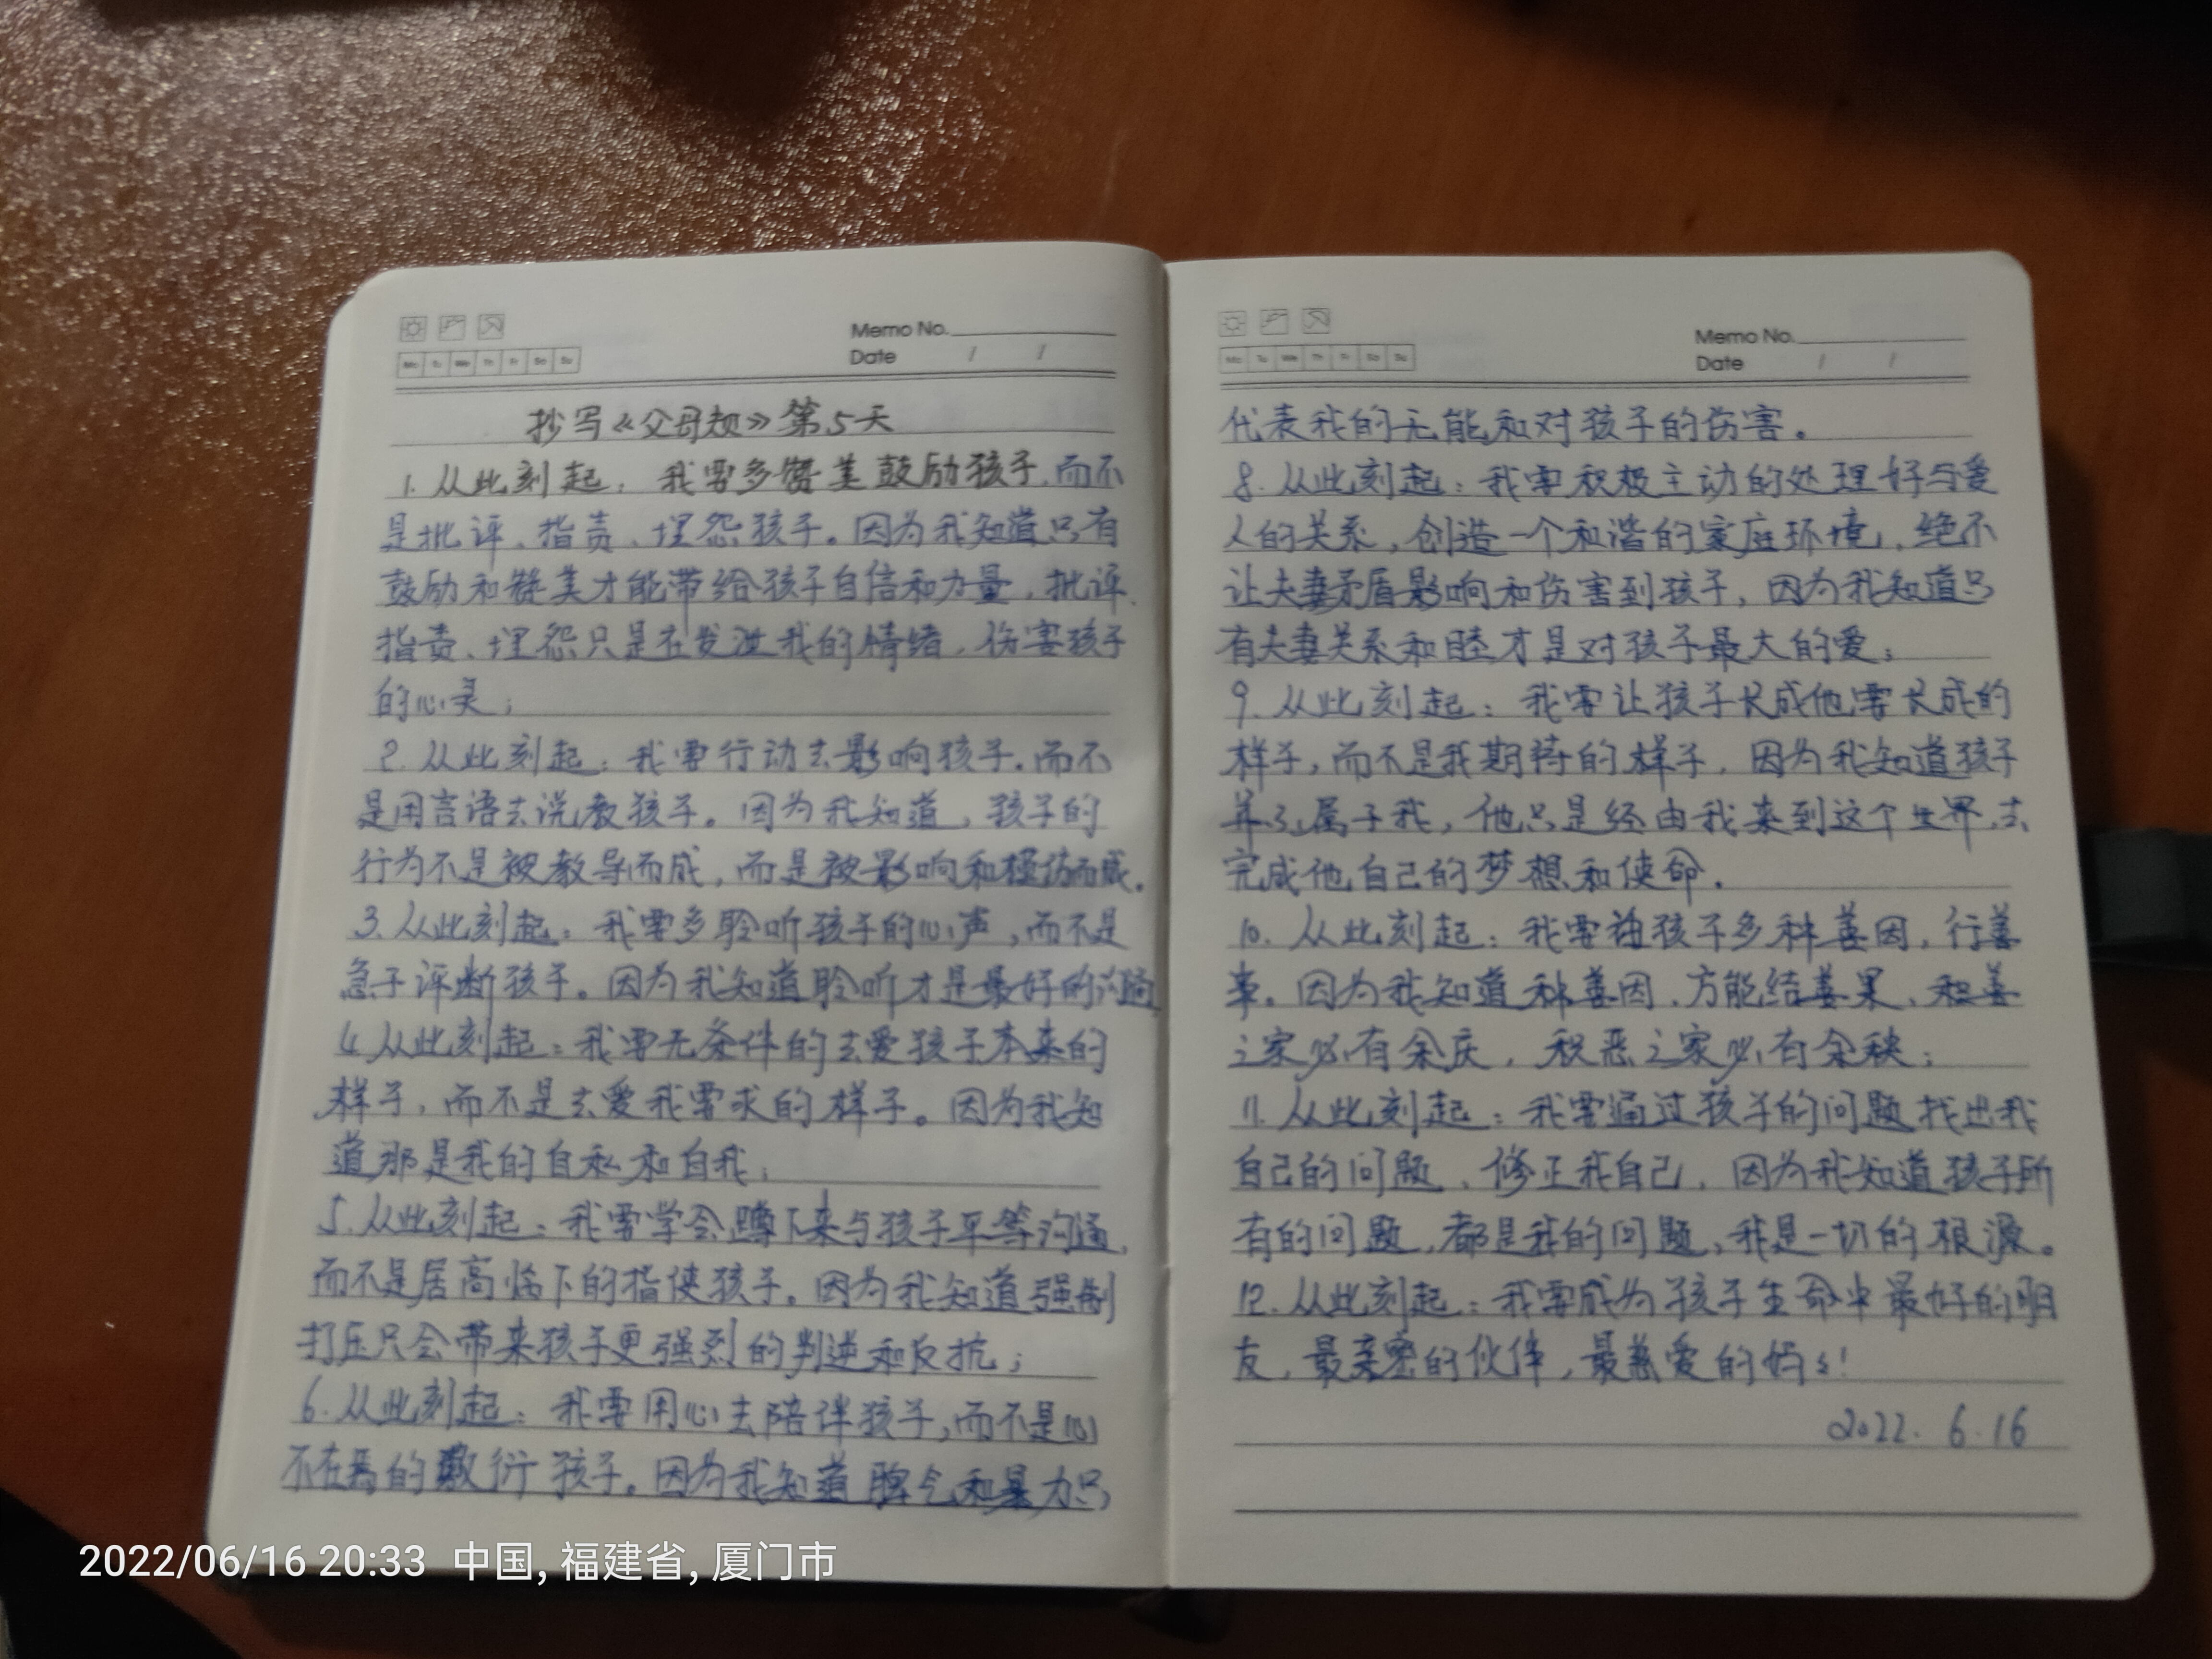 Memo No.
Date / /
Mo Tu We Th Fr Sa Su
抄写《父母规》第5天
1. 从此刻起：我要多赞美鼓励孩子，而不
是批评、指责、埋怨孩子。因为我知道只有
鼓励和赞美才能带给孩子自信和力量，批评、
指责、埋怨只是在发泄我的情绪，伤害孩子
的心灵；
2. 从此刻起：我要行动去影响孩子，而不
是用言语去说教孩子。因为我知道，孩子的
行为不是被教导而成，而是被影响和模仿而成。
3. 从此刻起：我要多聆听孩子的心声，而不是
急于评断孩子。因为我知道聆听才是最好的沟通
4. 从此刻起：我要无条件的去爱孩子本来的
样子，而不是去爱我要求的样子。因为我知
道那是我的自私和自我；
5. 从此刻起：我要学会蹲下来与孩子平等沟通，
而不是居高临下的指使孩子。因为我知道强制
打压只会带来孩子更强烈的判逆和反抗；
6. 从此刻起：我要用心去陪伴孩子，而不是心
不在焉的敷衍孩子。因为我知道脾气和暴力只
Memo No.
Date / /
Mo Tu We Th Fr Sa Su
代表我的无能和对孩子的伤害。
8. 从此刻起：我要积极主动的处理好与爱
人的关系，创造一个和谐的家庭环境，绝不
让夫妻矛盾影响和伤害到孩子，因为我知道只
有夫妻关系和睦才是对孩子最大的爱；
9. 从此刻起：我要让孩子长成他要长成的
样子，而不是我期待的样子，因为我知道孩子
并不属于我，他只是经由我来到这个世界，去
完成他自己的梦想和使命．
10. 从此刻起：我要为孩子多种善因，行善
事。因为我知道种善因，方能结善果，积善
之家必有余庆，积恶之家必有余秧；
11. 从此刻起：我要通过孩子的问题找出我
自己的问题，修正我自己，因为我知道孩子所
有的问题，都是我的问题，我是一切的根源。
12. 从此刻起：我要成为孩子生命中最好的朋
友，最亲密的伙伴，最慈爱的妈々！
2022. 6. 16
2022/06/16 20:33 中国, 福建省, 厦门市